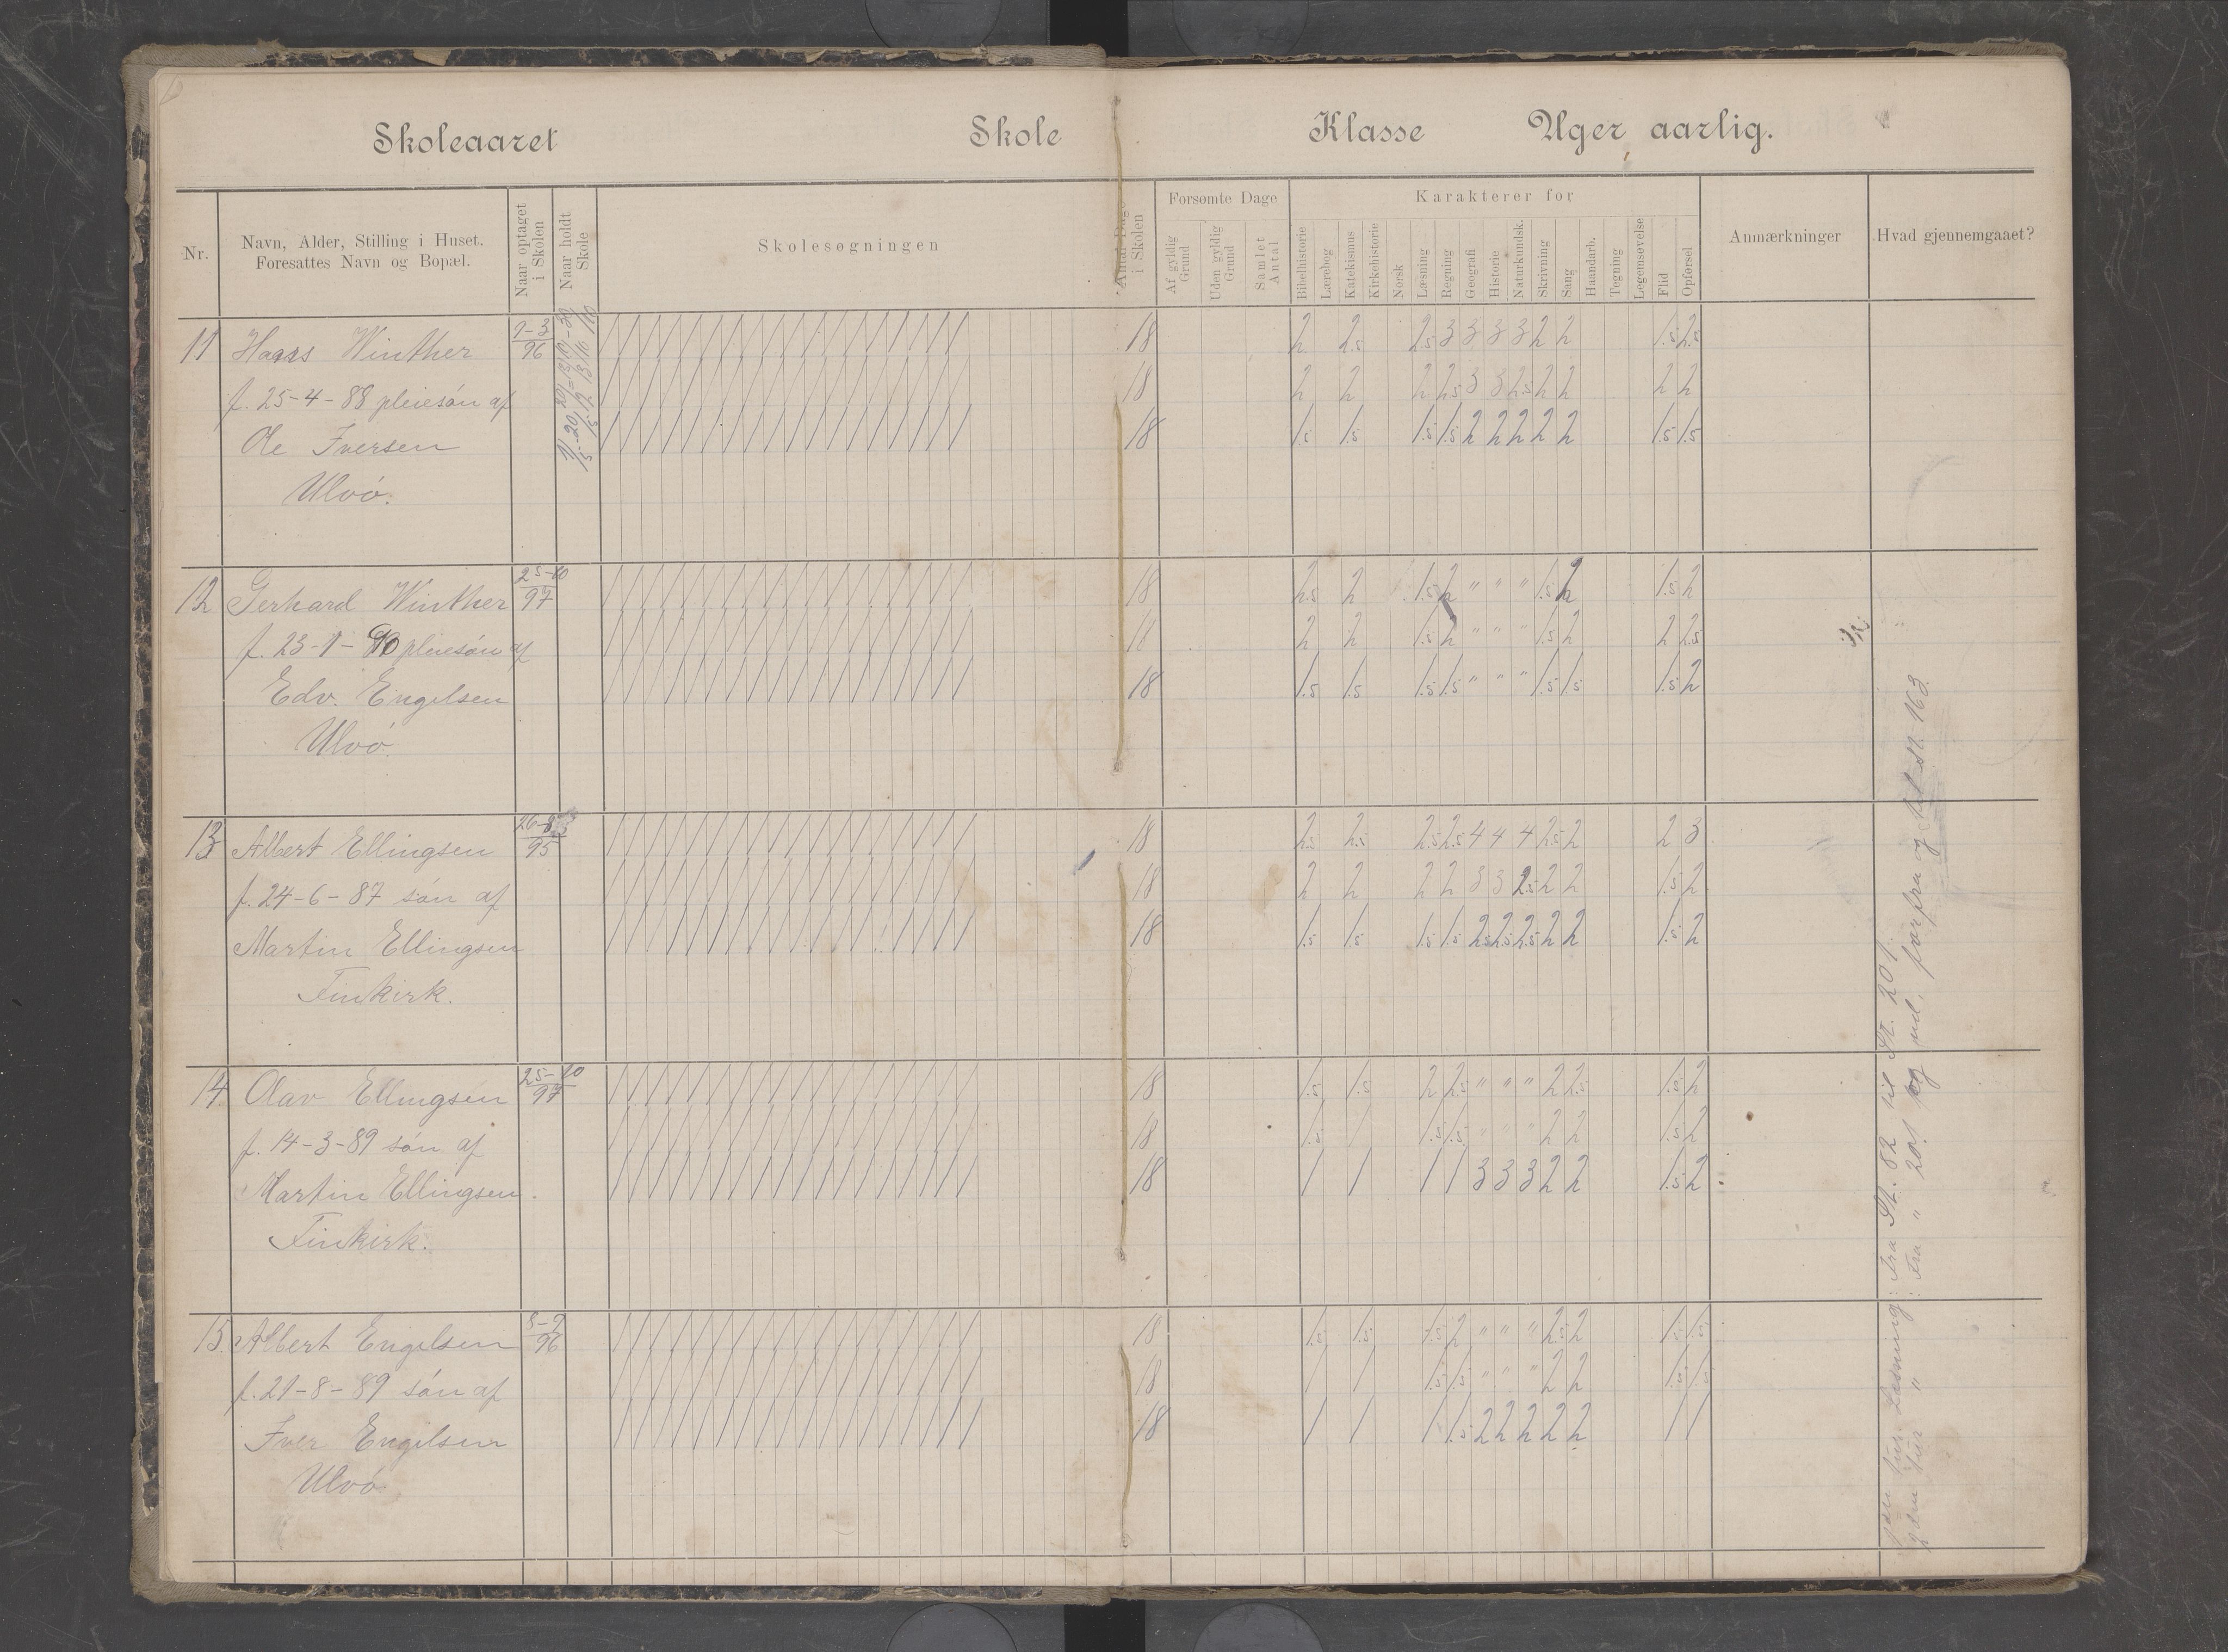 Skoleaaret Skole Klasse Uger aarlig.
Nr.
Navn, Alder, Stilling i Huset.
Foresattes Navn og Bopæl.
Naar optaget i Skolen
Naar holdt Skole
Skolesøgningen
Antal Dage i Skolen
Forsømte Dage
Af gyldig Grund
Uden gyldig Grund
Samlet Antal
Karakterer for
Bibelhistorie
Lærebog
Katekismus
Kirkehistorie
Norsk
Læsning
Regning
Geografi
Historie
Naturkundsk.
Skrivning
Sang
Haandarb.
Tegning
Legemsøvelse
Flid
Opførsel
Anmærkninger
Hvad gjennemgaaet?
11 Haas Winther 9-3/96 18 2 2.5 2.5 3 3 3 3 2 2 1.5 2.5
f. 25-4-88 pleiesøn af 18 2 2 2 2.5 3 3 2.5 2 2 2 2
Ole Iversen 18 1.5 1.5 1.5 1.5 2 2 2 2 2 1.5 1.5
Ulvø.
12 Gerhard Winther 25-10/97 18 2.5 2 1.5 2 " " " 1.5 2 1.5 2
f. 23-1-90 pleiesøn af 18 2 2 1.5 2 " " " 1.5 2 2 2.5
Edv. Engelsen 18 1.5 1.5 1.5 1.5 " " " 1.5 1.5 1.5 2
Ulvø.
13 Albert Ellingsen 26-8/95 18 2.5 2.5 2.5 2.5 4 4 4 2.5 2 2 3
f. 24-6-87 søn af 18 2 2 2 2 3 3 2.5 2 2 1.5 2
Martin Ellingsen 18 1.5 1.5 1.5 1.5 2.5 2.5 2.5 2 2 1.5 2
Finkirk.
14 Olav Ellingsen 25-10/97 18 1.5 1.5 2 2.5 " " " 2 2.5 1.5 2
f. 14-3-89 søn af 18 1.5 1 1.5 1.5 " " " 2 2 1.5 2
Martin Ellingsen. 18 1 1 1 1 3 3 3 2 2 1.5 2
Finkirk.
15. Albert Engelsen 8-9/96 18 1.5 1.5 1.5 2 " " " 2.5 2 1.5 1.5
f. 21-8-89 søn af 18 1 1 1.5 1.5 " " " 2 2 1.5 1.5
Iver Engelsen 18 1 1 1 1.5 2 2 2 2 2 1 1
Ulvø.
Læsning: Fra St. 82 til St. 201.
" : Fra " 201 og ud, forfra og til St. 163.